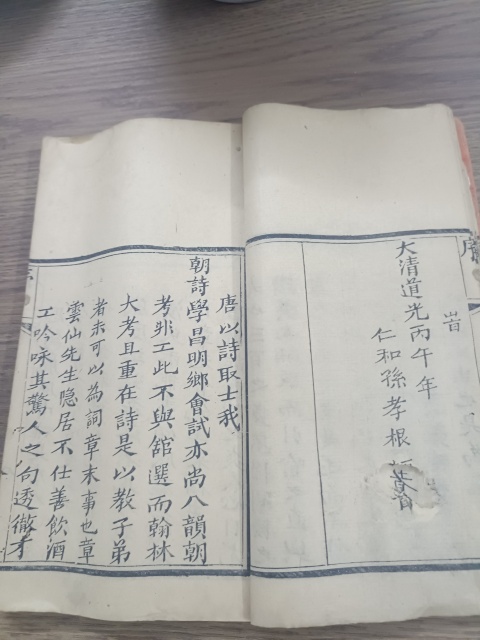 序
大清道光丙午年
仁和孫孝根
唐以詩取士我
朝詩學昌明鄉會試亦尚八韻朝
考非工此不與舘選而翰林
大考且重在詩是以教子弟
者未可以為詞章末事也章
雲仙先生隐居不仕善飲酒
工吟咏其驚人之句透徹才